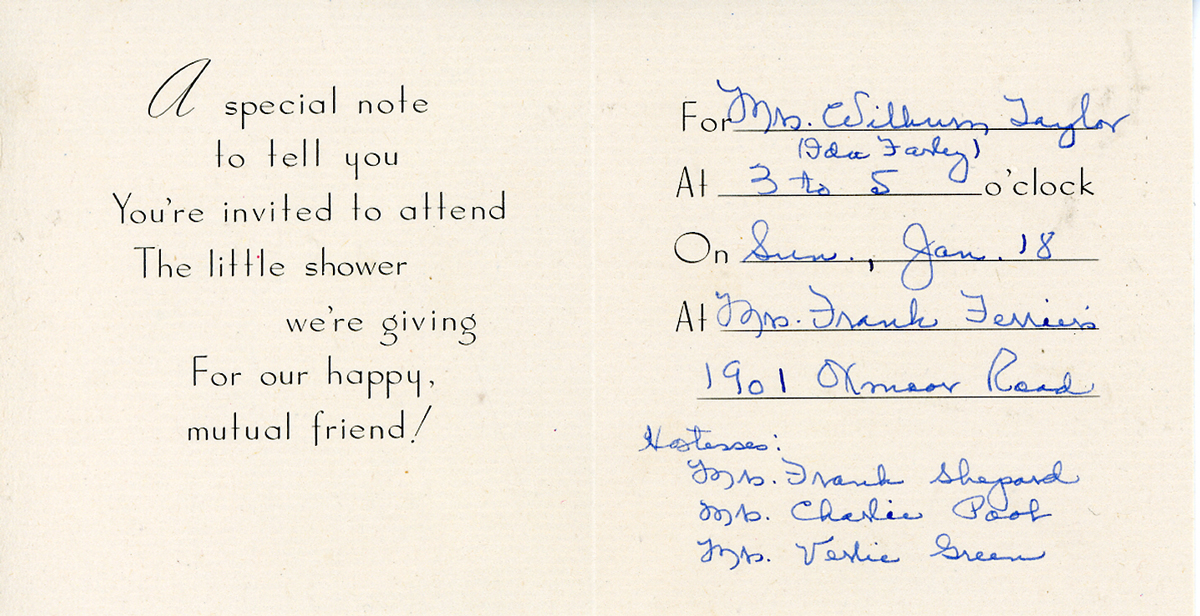 A special note
to tell you
You're invited to attend
The little shower
we're giving
For our happy,
mutual friend!
For Mrs. Wilburn Taylor
(Ida Farley)
At 3 to 5 o'clock
On Sun., Jan. 18
At Mrs. Frank Ferrier's
1901 Oxmoor Road
Hostesses:
Mrs. Frank Shepard
Mrs. Charlie Poof
Mrs. Verlie Green